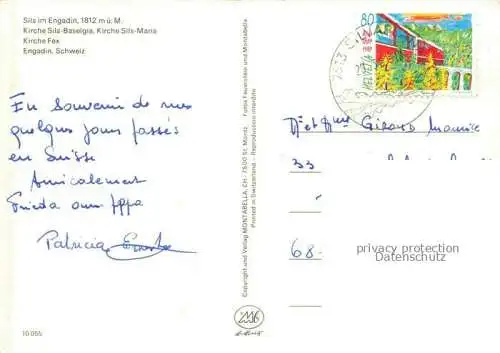 Sils im Engadin, 1812 m ü. M.
Kirche Sils-Baselgia, Kirche Sils-Maria
Kirche Fex
Engadin, Schweiz
En souvenir de nos
quelques jours passés
en Suisse
Amicalement
Frieda
Patricia
10 055
Copyright und Verlag MONTABELLA, CH - 7500 St. Moritz Fotos Feuerstein und Montabella
Printed in Switzerland - Reproduction interdite
80
HELVETIA
7513 SILV
Mr et Mme Girard Maurice
33
68-
privacy protection
Datenschutz